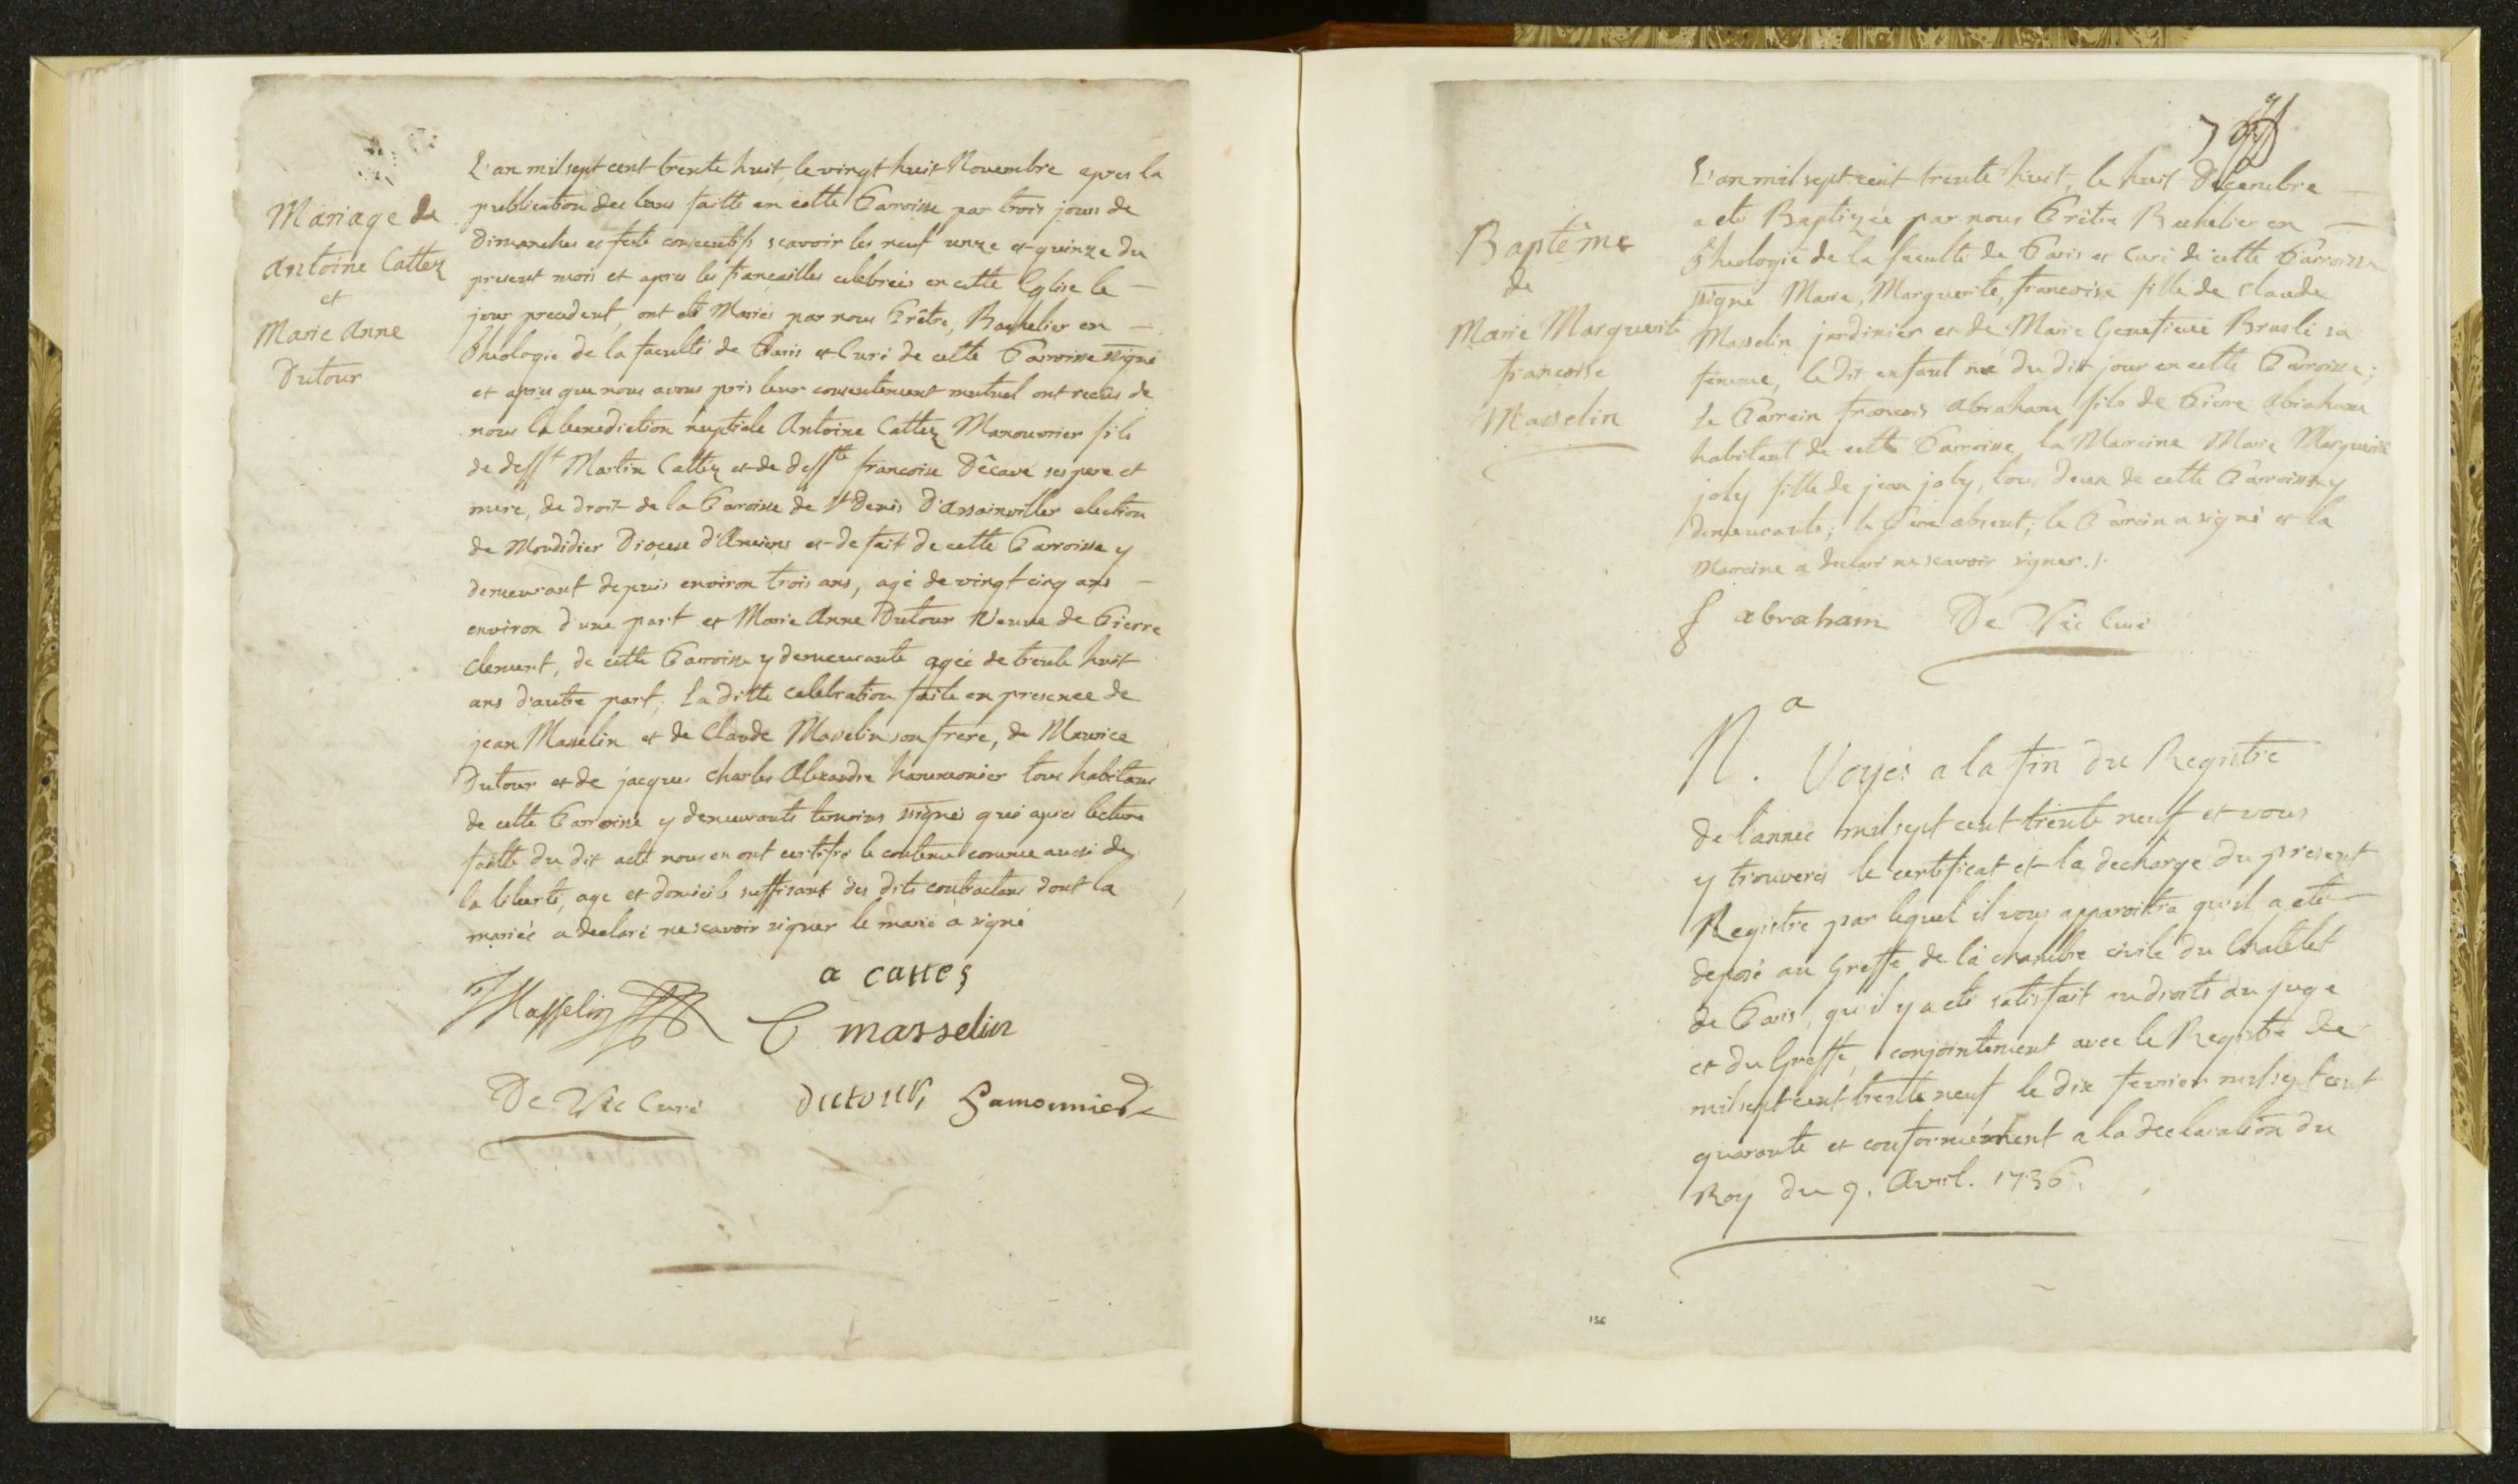 Mariage de
Antoine Cattez
et
Marie Anne
Dutour
L'an mil sept cent trente huit, le vingt huit Novembre apres la
publication des bans faitte en cette Parroisse par trois jours de
Dimanches et feste consecutifs scavoir les neuf unze et quinze du
present mois et apres les fiançailles celebreés en cette Eglise le
jour precedent, ont eté Mariés par nous Prêtre, Bachelier en
Theologie de la faculté de Paris et Curé de cette Parroisse ssigné
et apres que nous avons pris leur consentement mutuel ont recus de
nous la benediction nuptiale Antoine Cattez Manouvrier fils
de defft Martin Cattez et de deffte francoise Dêcavé ses pere et
mere, de droit de la Paroisse de St Denis D'Assainviller election
de Mondidier Diocese d'Amiens et de fait de cette Parroisse y
demeurant depuis environ trois ans, agé de vingt cinq ans
environ d'une part et Marie Anne Dutour Veuve de Pierre
Clement, de cette Parroisse y demeurante ageé de trente huit
ans d'autre part, La ditte celebration faite en presence de
jean Masselin et de Claude Masselin son frere, de Maurice
Dutour et de jacques charles Alexandre hammonier tous habitans
de cette Parroisse y demeurants temoins ssignés qui apres lecture
faitte du dit acte nous en ont certifié le contenu comme aussi de
la liberté, age et domicile suffisant des dits contractans dont la
marieé a declaré ne scavoir signer le marié a signé
a cattes
Masselin
C masselin
De Vic Curé
dutour hamonnier
Baptême
de
Marie Marguerite
françoise
Masselin
L'an mil sept cent trente huit, le huit Décembre
a eté Baptizeé par nous Prêtre Bachélier en
Theologie de la faculté de Paris et Curé de cette Parroisse
ssigné Marie, Marguerite, francoise fille de Claude
Masselin jardinier et de Marie Geneviéve Bruslé sa
femme, le dit enfant né du dit jour en cette Parroisse;
Le Parrein francois Abraham fils de Pierre Abraham
habitant de cette Parroisse, la Mareine Marie Marguerite
joly fille de jean joly, tous deux de cette Parroisse y
demeurants; le Pere absent; le Parrein a signé et la
Mareine a declaré ne scavoir signer./.
f abraham De Vic Curé
Na
. Voyés a la fin du Registre
de l'anneé mil sept cent trente neuf et vous
y trouverés le certificat et la decharge du present
Registre par lequel il vous apparoittra qu'il a eté
deposé au Greffe de la chambre civile du Chatelet
de Paris, qu'il y a eté satisfait au droits du juge
et du Greffe, conjointement avec le Registre de
mil sept cent trente neuf le dix fevrier mil sept cent
quarante et conformément a la declaration du
Roy du 9. Avril. 1736.